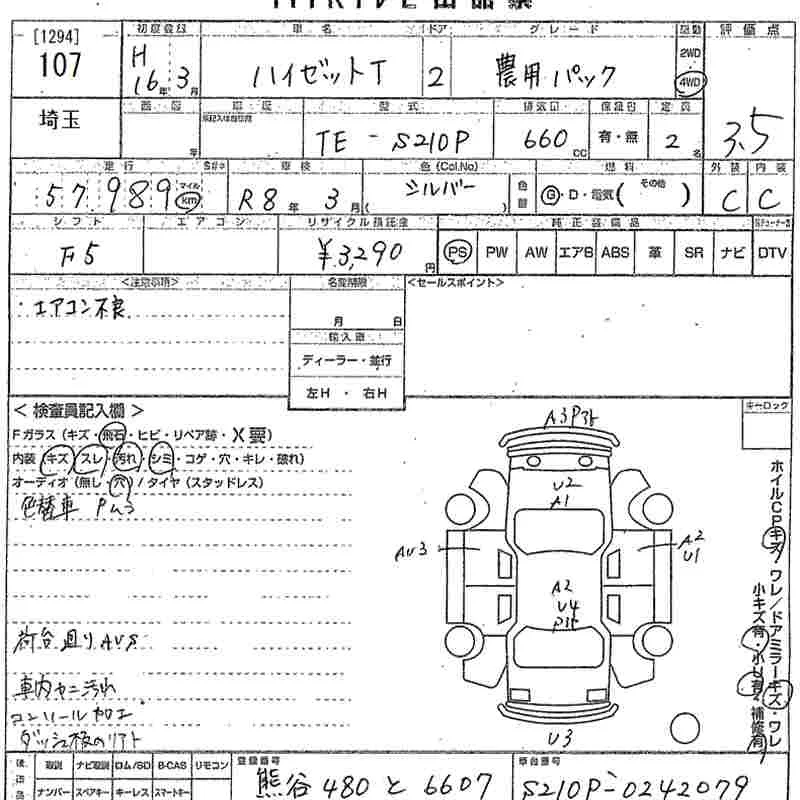 [1294]
107
埼玉
初度登録 車名 ドア グレード 駆動 評価点
H 16年 3月
ハイゼットT
2
農用パック
2WD
4WD
3.5
車歴 型式 排気量 保証書 定員
TE-S210P
660 CC
有・無
2名
走行 車検 色(Col.No) 燃料 外装 内装
57989 マイル km
R8年 3月
シルバー
色替
G・D・電気( その他 )
C C
シフト エアコン リサイクル預託金 純正装備品
F5
¥3,290円
PS PW AW エアB ABS 革 SR ナビ DTV
<注意事項>
・エアコン不良
名変期限
月 日
輸入車
ディーラー・並行
左H ・ 右H
<セールスポイント>
<検査員記入欄>
Fガラス(キズ・飛石・ヒビ・リペア跡・X要)
内装(キズ・スレ・汚れ・シミ・コゲ・穴・キレ・破れ)
オーディオ(無し・穴)/タイヤ(スタッドレス)
色替車
荷台廻りAUS
車内ヤニ汚れ
コンソール加工
キーロック
ホイルCPキズ・ワレ/ドアミラーキズ・ワレ
小キズ有・小U有・補修有
U2
A1
AU3
A2
U1
A2
U4
U3
後送品
取説 ナビ取説 ロム/SD B-CAS リモコン
ナンバー スペアキー キーレス スマートキー
登録番号
熊谷 480 と 6607
車台番号
S210P-0242079